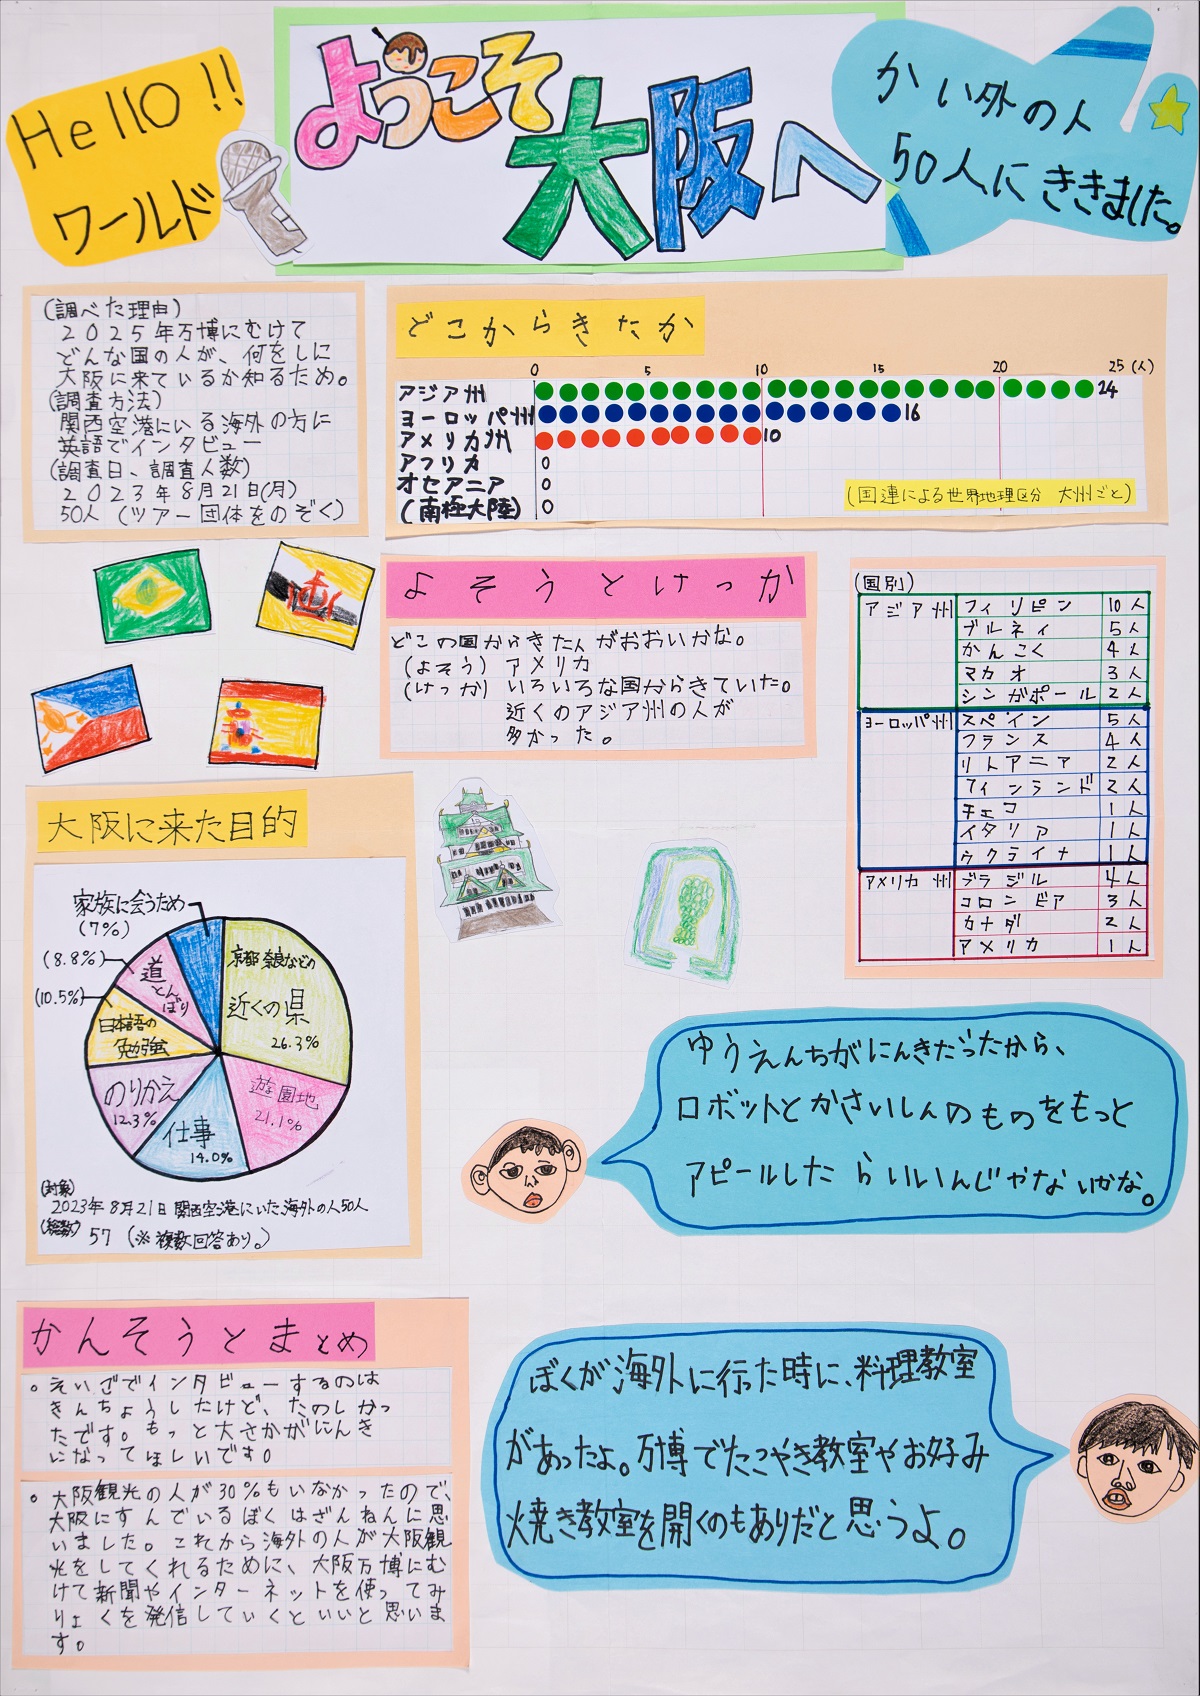 Hello!!
ワールド
ようこそ
大阪へ
かい外の人
50人にききました。
(調べた理由)
2025年万博にむけて
どんな国の人が、何をしに
大阪に来ているか知るため。
(調査方法)
関西空港にいる海外の方に
英語でインタビュー
(調査日、調査人数)
2023年8月21日(月)
50人(ツアー団体をのぞく)
どこからきたか
0 5 10 15 20 25(人)
アジア州 24
ヨーロッパ州 16
アメリカ州 10
アフリカ 0
オセアニア 0
(南極大陸) 0
(国連による世界地理区分 大州ごと)
よそうとけっか
どこの国からきた人がおおいかな。
(よそう) アメリカ
(けっか) いろいろな国からきていた。
近くのアジア州の人が
多かった。
(国別)
アジア州 フィリピン 10人
ブルネイ 5人
かんこく 4人
マカオ 3人
シンガポール 2人
ヨーロッパ州 スペイン 5人
フランス 4人
リトアニア 2人
フィンランド 2人
チェコ 1人
イタリア 1人
ウクライナ 1人
アメリカ州 ブラジル 4人
コロンビア 3人
カナダ 2人
アメリカ 1人
大阪に来た目的
家族に会うため
(7%)
(8.8%)
道とんぼり
(10.5%)
日本語の
勉強
のりかえ
12.3%
仕事
14.0%
遊園地
21.1%
京都奈良などの
近くの県
26.3%
(対象)
2023年8月21日関西空港にいた海外の人50人
(総数)
57 (※複数回答あり。)
ゆうえんちがにんきだったから、
ロボットとかさいしんのものをもっと
アピールしたらいいんじゃないかな。
かんそうとまとめ
。えいごでインタビューするのは
きんちょうしたけど、たのしかっ
たです。もっと大さかがにんき
になってほしいです。
。大阪観光の人が30%もいなかったので、
大阪にすんでいるぼくはざんねんに思
いました。これから海外の人が大阪観
光をしてくれるために、大阪万博にむ
けて新聞やインターネットを使ってみ
りょくを発信していくといいと思いま
す。
ぼくが海外に行った時に、料理教室
があったよ。万博でたこやき教室やお好み
焼き教室を開くのもありだと思うよ。